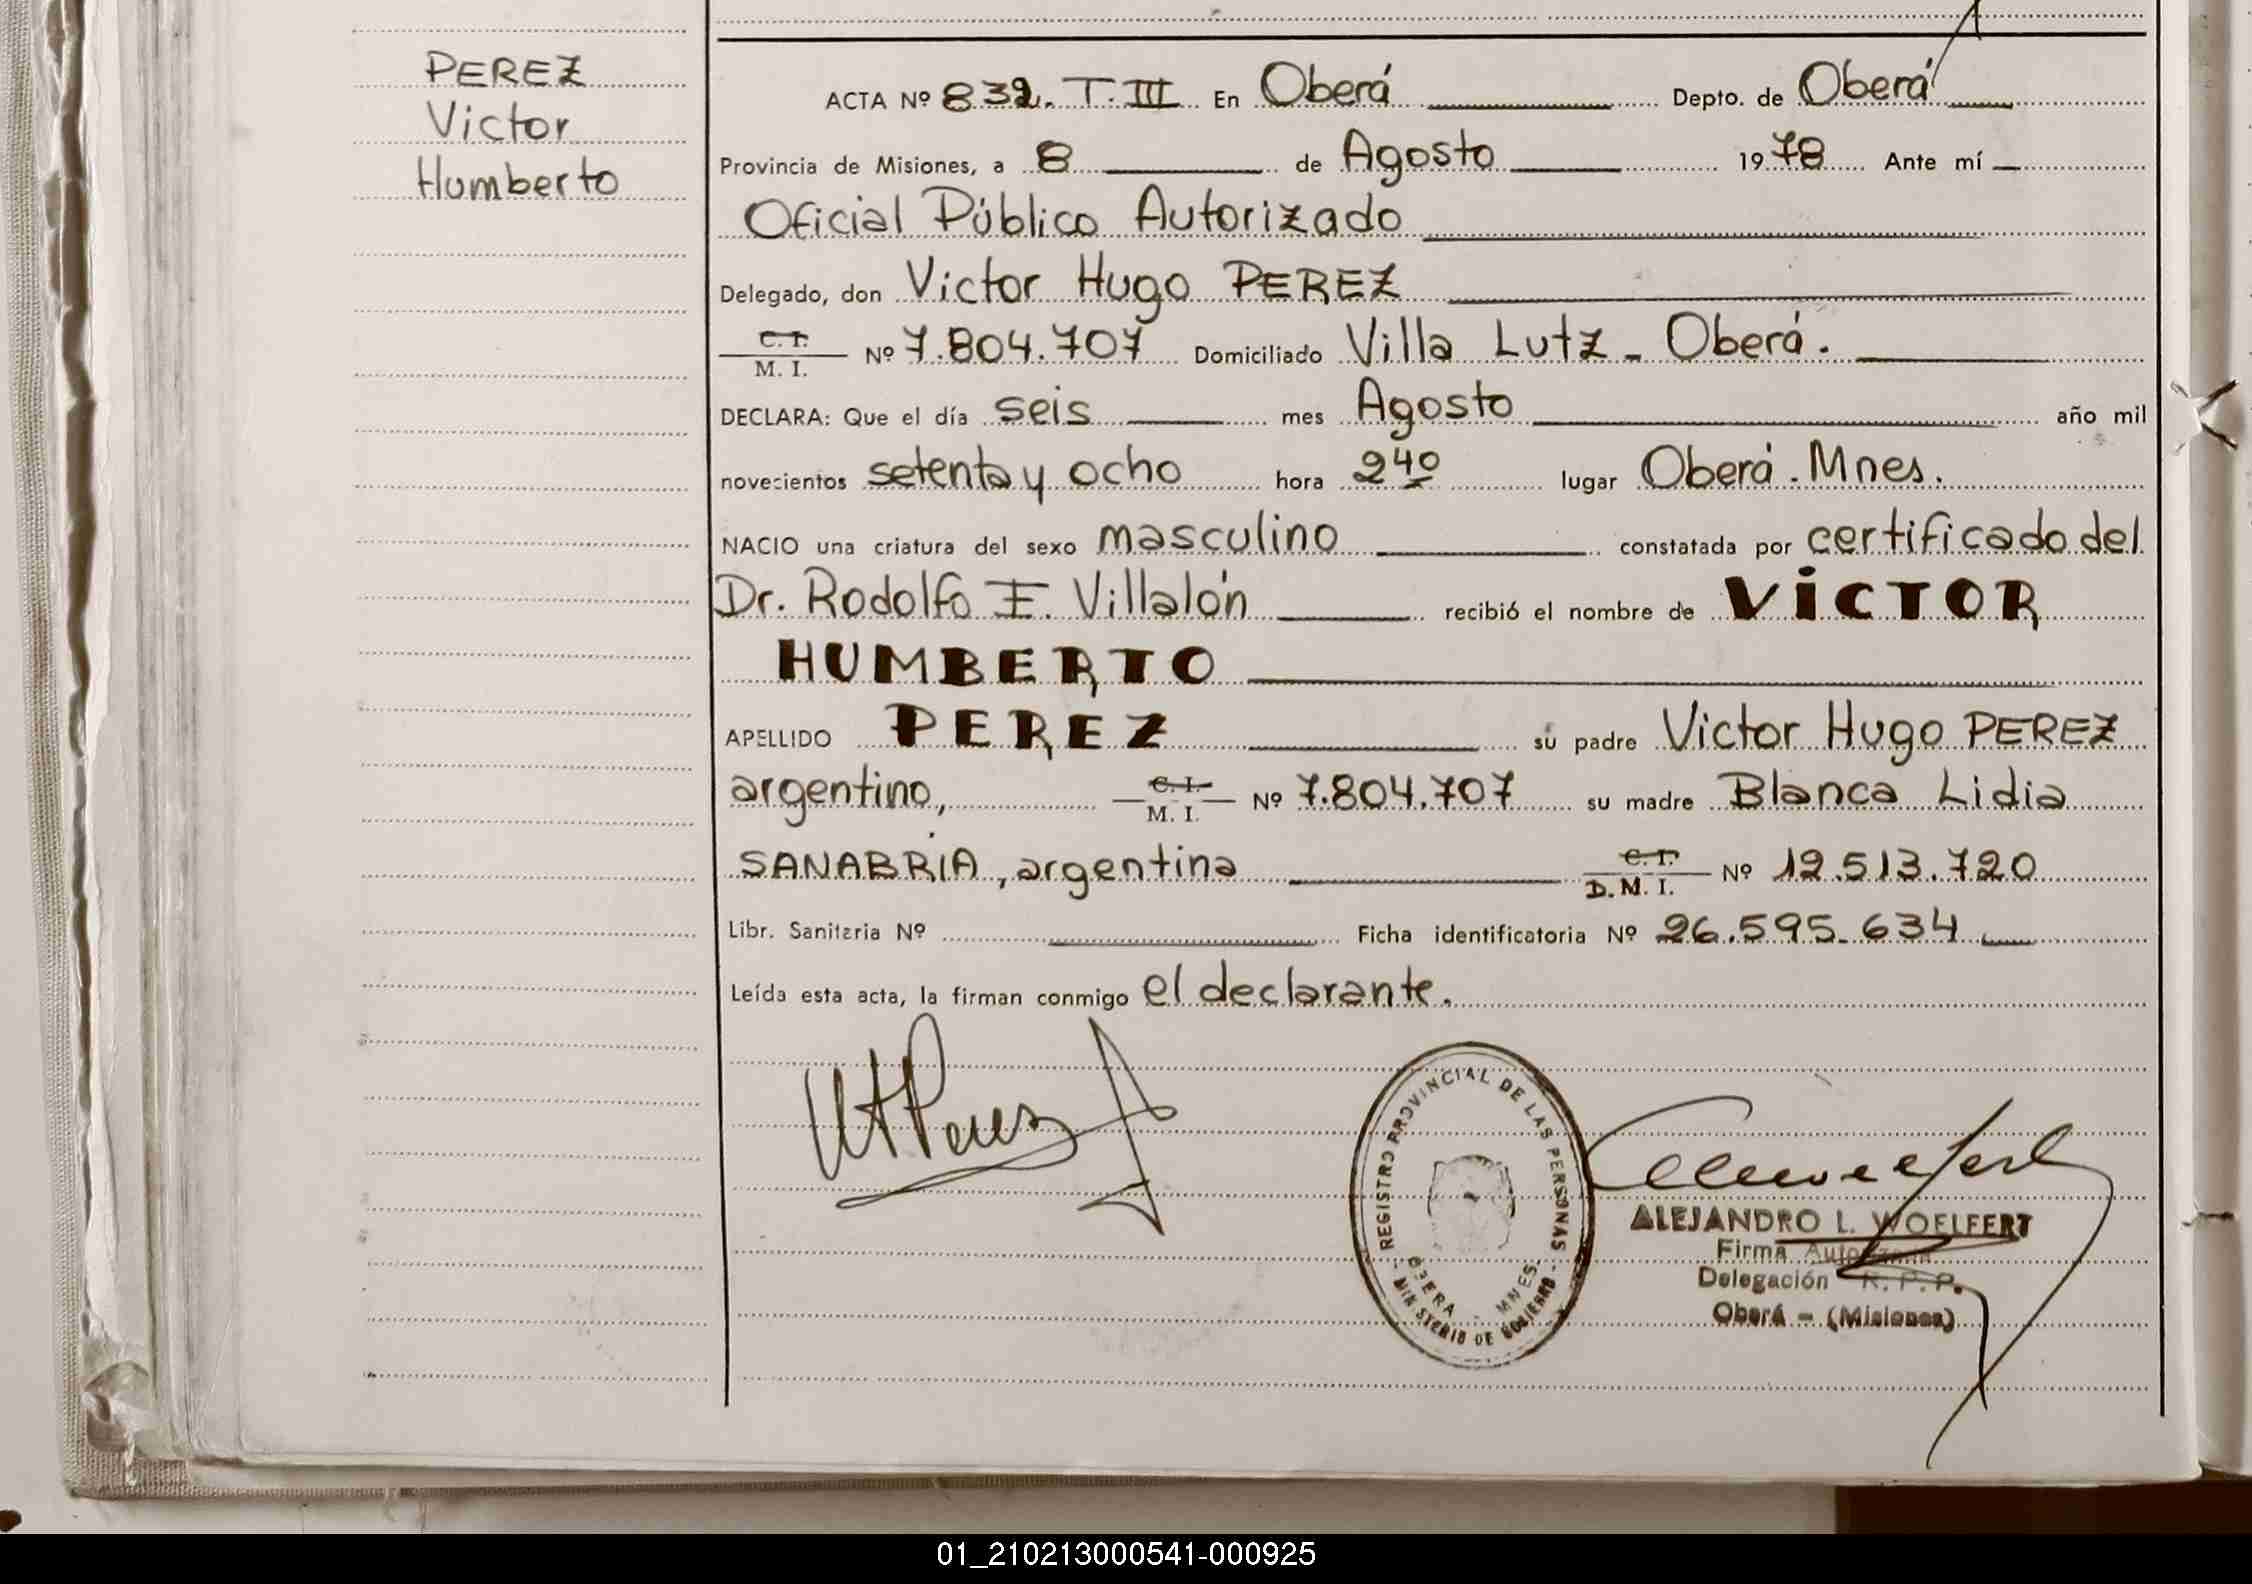 PEREZ
Victor
Humberto
ACTA Nº 832. T. III En Oberá Depto. de Oberá
Provincia de Misiones, a 8 de Agosto 1978 Ante mí
Oficial Público Autorizado
Delegado, don Victor Hugo PEREZ
C. I.
M. I. Nº 7.804.707 Domiciliado Villa Lutz - Oberá.
DECLARA: Que el día seis mes Agosto año mil
novecientos setenta y ocho hora 2 40 lugar Oberá. Mnes.
NACIO una criatura del sexo masculino constatada por certificado del
Dr. Rodolfo E. Villalón recibió el nombre de VICTOR
HUMBERTO
APELLIDO PEREZ su padre Victor Hugo PEREZ
argentino, C. I.
M. I. Nº 7.804.707 su madre Blanca Lidia
SANABRIA, argentina C. I.
D. M. I. Nº 12.513.720
Libr. Sanitaria Nº Ficha identificatoria Nº 26.595.634
Leída esta acta, la firman conmigo el declarante.
VHPerez
REGISTRO PROVINCIAL DE LAS PERSONAS
OBERA - MNES
- MINISTERIO DE GOBIERNO -
ALEJANDRO L. WOELFERT
Firma Autorizada
Delegación R. P. P.
Oberá - (Misiones)
01_210213000541-000925